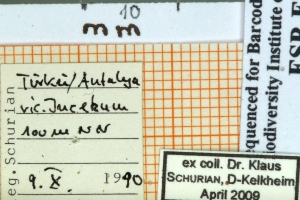 10
mm
Türkei/Antalya
vic. Incekum
100 m NN
9. X. 1990
eg. Schurian
equenced for Barcod
odiversity Institute o
ex coll. Dr. Klaus
SCHURIAN, D-Kelkheim
April 2009